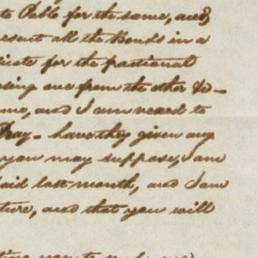 to Debt for the same, and
resent all the Bonds in a
ficate for the fractional
sing one from the other &c—
me, and I am vexed to
Pray – have they given any
you may suppose, I am
aid last month, and I am
ture, and that you will